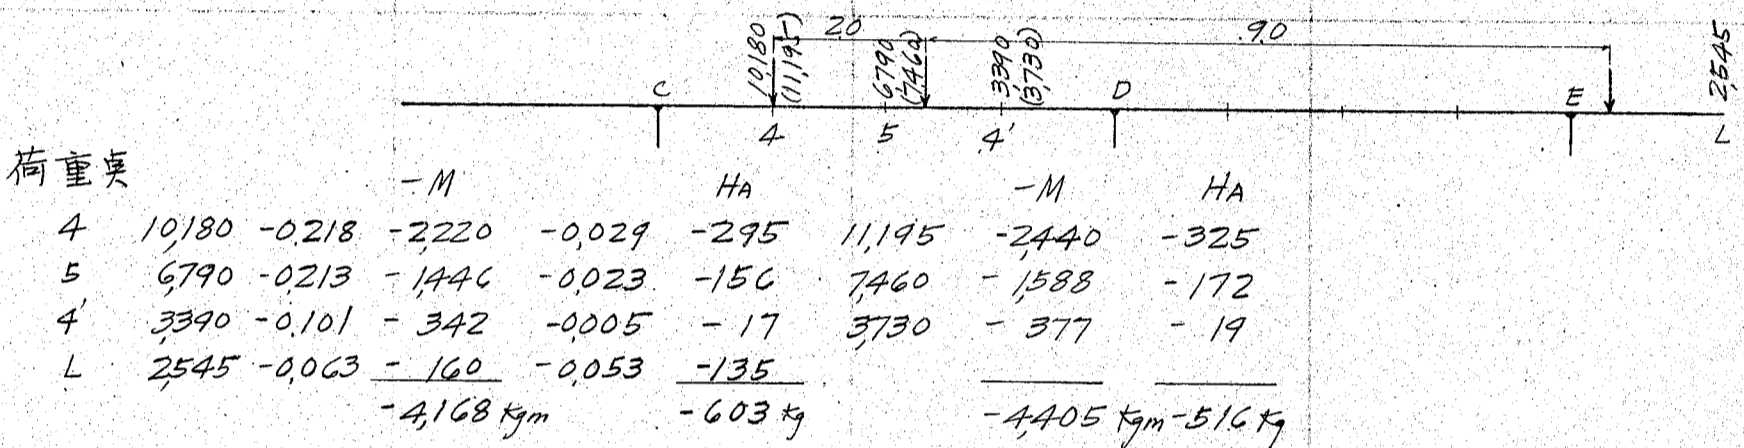 10,180 (11,195) 2.0 6,790 (7,460) 3,390 (3,730) 9.0 2,545
C D E
4 5 4' L
荷重臭
-M HA -M HA
4 10,180 -0.218 -2,220 -0,029 -295 11,195 -2,440 -325
5 6,790 -0,213 -1,446 -0,023 -156 7,460 -1,588 -172
4' 3,390 -0,101 -342 -0,005 -17 3,730 -377 -19
L 2,545 -0,063 -160 -0,053 -135
-4,168 kgm -603 kg -4,405 kgm -516 kg